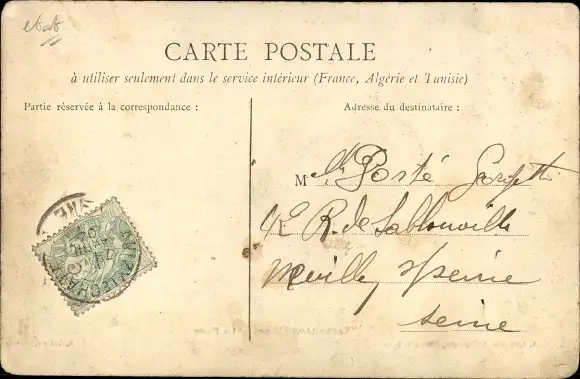 etat
CARTE POSTALE
à utiliser seulement dans le service intérieur (France, Algérie et Tunisie)
Partie réservée à la correspondance :
Adresse du destinataire :
M lle Porté
R. de Sablonville
Neuilly s/ Seine
Seine